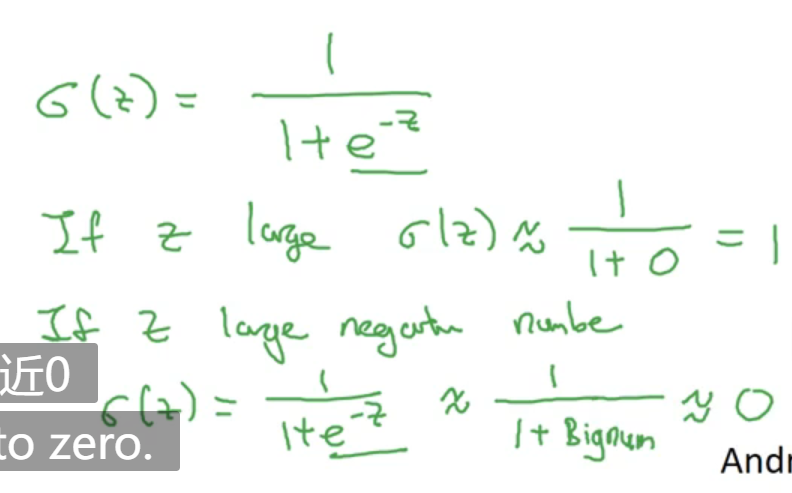 σ(z) = 1 / (1 + e^(-z))
If z large σ(z) ≈ 1 / (1 + 0) = 1
If z large negative number
近0
σ(z) = 1 / (1 + e^(-z)) ≈ 1 / (1 + Bignum) ≈ 0
to zero.
Andr